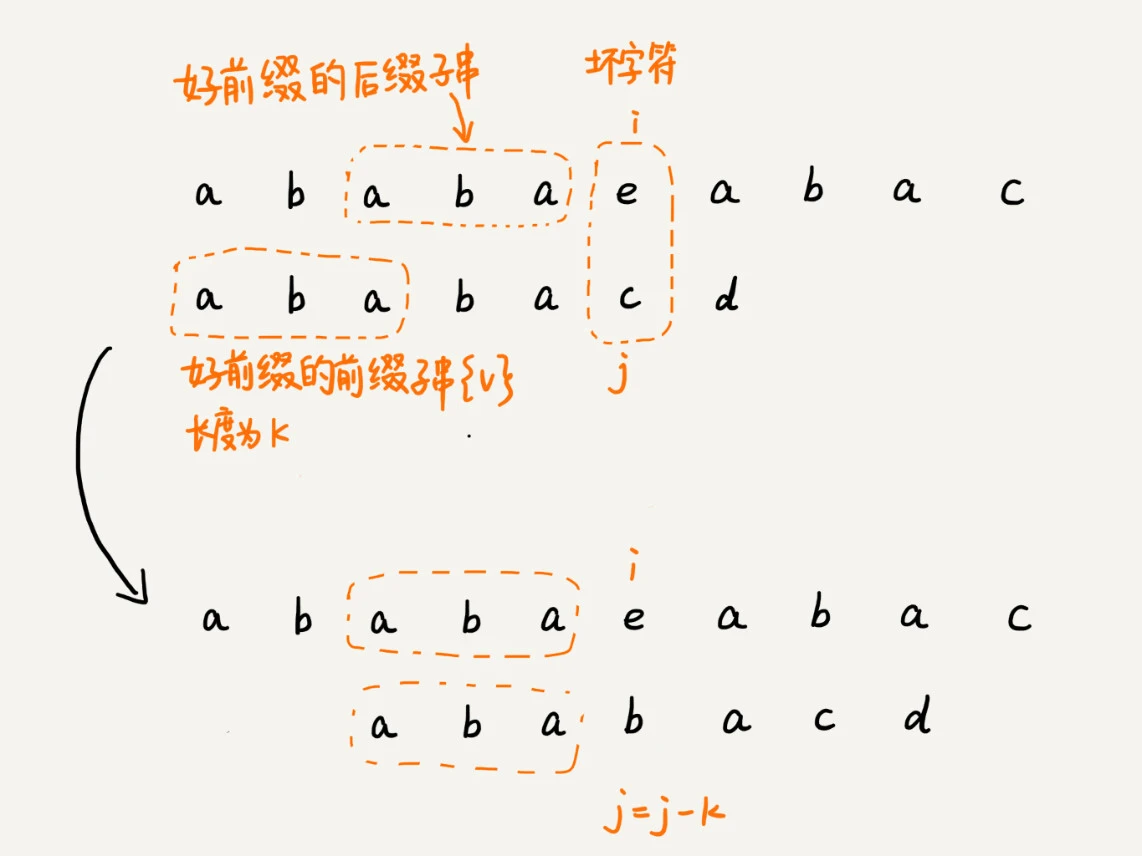 好前缀的后缀子串
坏字符
i
a b a b a e a b a c
a b a b a c d
好前缀的前缀子串{v}
j
长度为k
i
a b a b a e a b a c
a b a b a c d
j=j-k